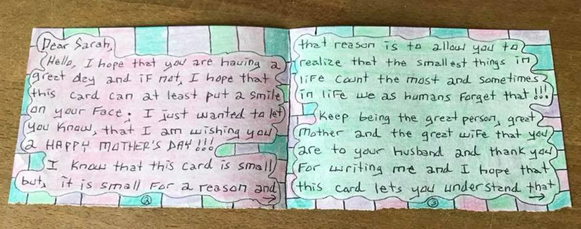 Dear Sarah,
Hello, I hope that you are having a
great day and if not, I hope that
this card can at least put a smile
on your face. I just wanted to let
you know, that I am wishing you
a HAPPY MOTHER'S DAY!!!
I know that this card is small
but, it is small for a reason and
→
2
that reason is to allow you to
realize that the smallest things in
life count the most and sometimes
in life we as humans forget that!!!
Keep being the great person, great
mother and the great wife that you
are to your husband and thank you
for writing me and I hope that
this card lets you understand that
→
3